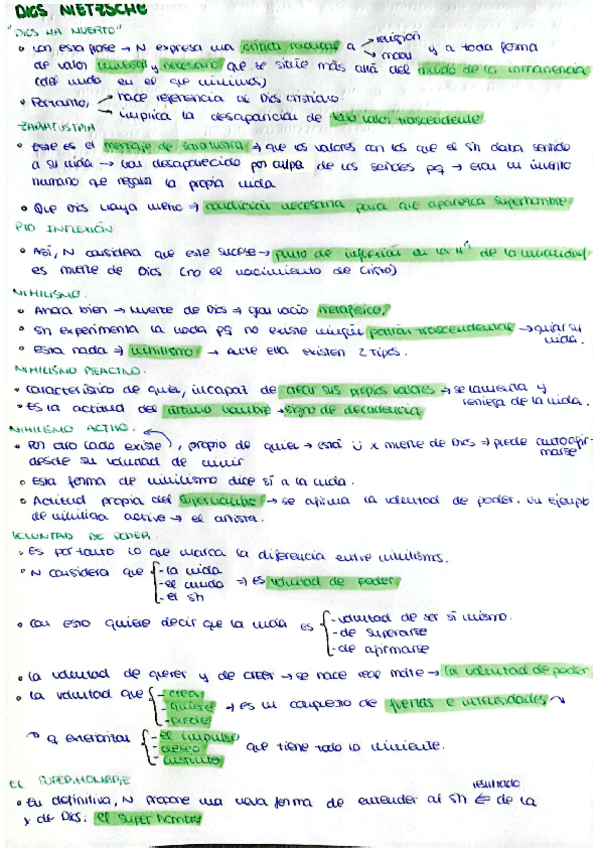 DIOS NIETZSCHE
"DIOS HA MUERTO"
• Con esta frase → N expresa una crítica radical a → religión → moral y a toda forma
de valor universal y necesario que se sitúe más allá del mundo de la inmanencia
(del mundo en el que vivimos)
• Por tanto, → hace referencia al Dios cristiano.
→ implica la desaparición de todo valor trascendente.
ZARATUSTRA
• Este es el mensaje de Zaratustra → que los valores con los que el SH daba sentido
a su vida → han desaparecido por culpa de los señores pq → eran un invento
humano que negaba la propia vida
• Que Dios haya muerto → condición necesaria para que aparezca superhombre.
PTO INFLEXIÓN
• Así, N considera que este suceso → punto de inflexión en la Hª de la humanidad
es muerte de Dios (no el nacimiento de Cristo)
NIHILISMO.
• Ahora bien → Muerte de Dios → gran vacío metafísico.
• SH experimenta la nada pq no existe ningún patrón trascendental → guiar su
vida.
• Esta nada → nihilismo → Ante ella existen 2 tipos.
NIHILISMO REACTIVO.
• Característico de quien, incapaz de crear sus propios valores → se lamenta y
reniega de la vida.
• Es la actitud del último hombre → signo de decadencia
NIHILISMO ACTIVO.
• Por otro lado existe, propio de quien → está U x muerte de Dios → puede autoafir-
marse
desde su voluntad de vivir
• Esta forma de nihilismo dice sí a la vida.
• Actitud propia del superhombre → se afirma la voluntad de poder. Un ejemplo
de nihilista activo → el artista.
VOLUNTAD DE PODER.
• Es por tanto lo que marca la diferencia entre nihilismos.
• N considera que { - la vida
- el mundo ⇒ es voluntad de poder
- el SH
• Con esto quiere decir que la vida es { - voluntad de ser sí mismo.
- de superarse
- de afirmarse
• La voluntad de querer y de creer → se hace realmente → la voluntad de poder
• La voluntad que { - crea
- quiere → es un compuesto de fuerzas e intensidades
- puede
q exterioriza { - el impulso
- deseo que tiene todo lo viviente.
- instinto
EL SUPERHOMBRE
resultado
• En definitiva, N propone una nueva forma de entender al SH ⇐ de la
x de Dios: el superhombre